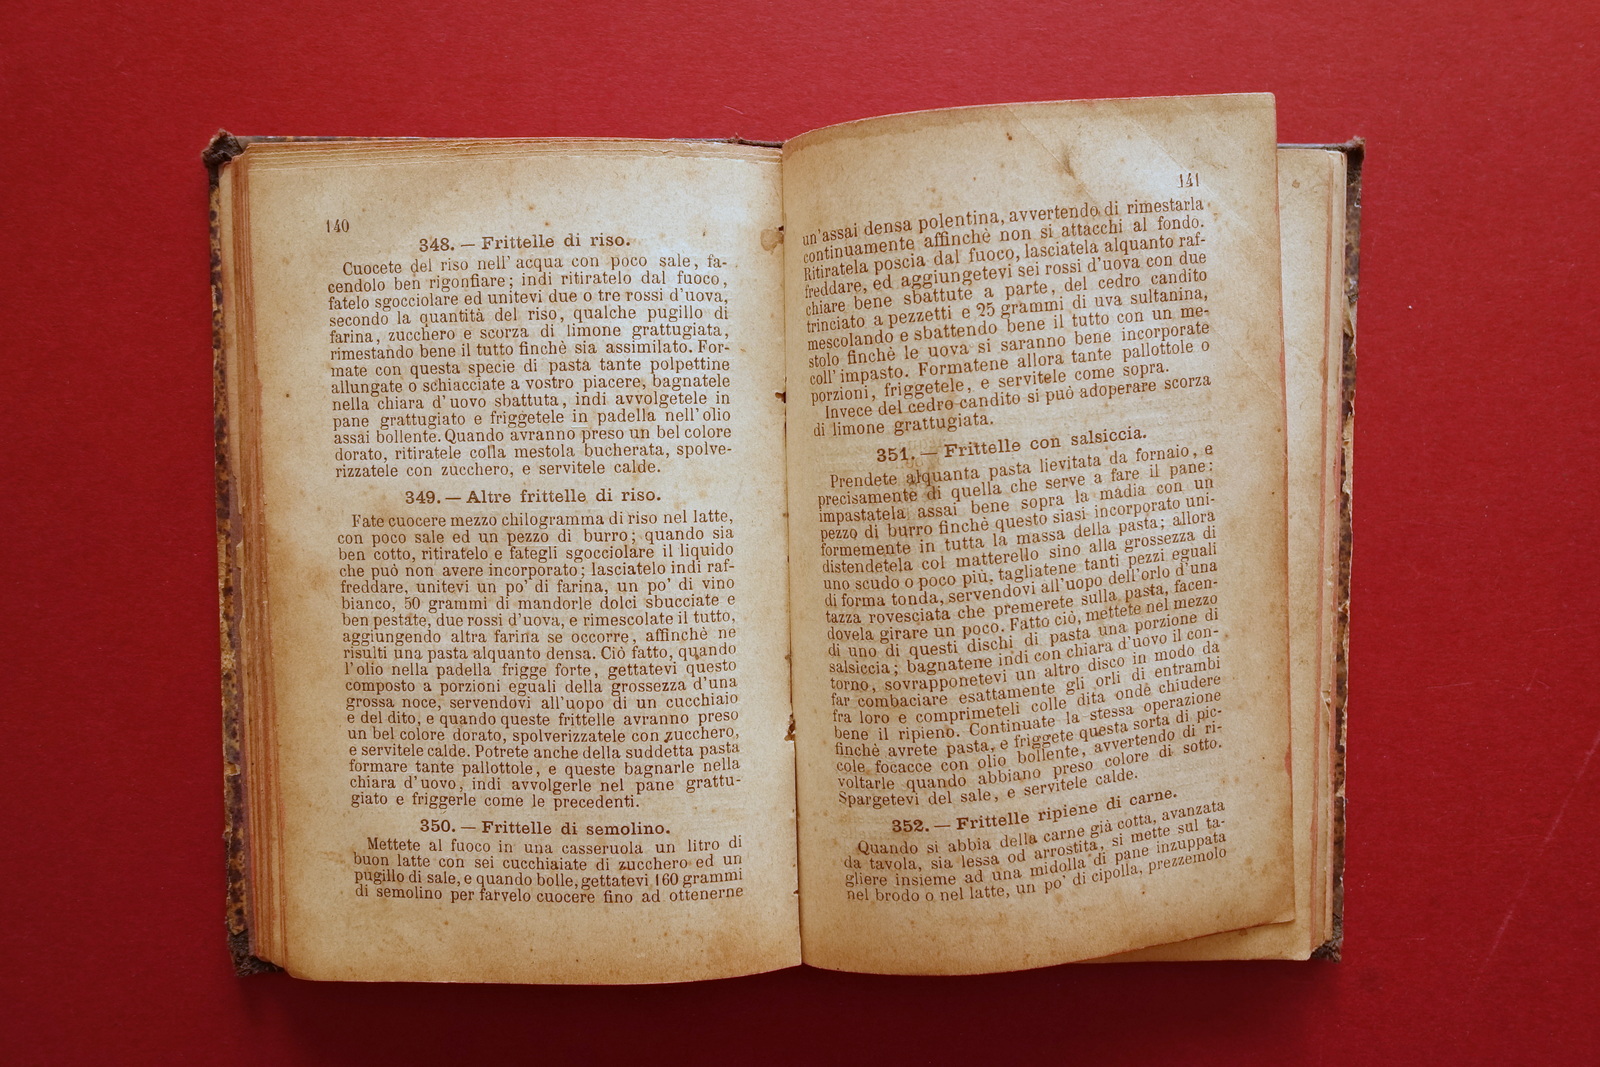 140
348. — Frittelle di riso.
Cuocete del riso nell'acqua con poco sale, fa-
cendolo ben rigonfiare; indi ritiratelo dal fuoco,
fatelo sgocciolare ed unitevi due o tre rossi d'uova,
secondo la quantità del riso, qualche pugillo di
farina, zucchero e scorza di limone grattugiata,
rimestando bene il tutto finchè sia assimilato. For-
mate con questa specie di pasta tante polpettine
allungate o schiacciate a vostro piacere, bagnatele
nella chiara d'uovo sbattuta, indi avvolgetele in
pane grattugiato e friggetele in padella nell'olio
assai bollente. Quando avranno preso un bel colore
dorato, ritiratele colla mestola bucherata, spolve-
rizzatele con zucchero, e servitele calde.
349. — Altre frittelle di riso.
Fate cuocere mezzo chilogramma di riso nel latte,
con poco sale ed un pezzo di burro; quando sia
ben cotto, ritiratelo e fategli sgocciolare il liquido
che può non avere incorporato; lasciatelo indi raf-
freddare, unitevi un po' di farina, un po' di vino
bianco, 50 grammi di mandorle dolci sbucciate e
ben pestate, due rossi d'uova, e rimescolate il tutto,
aggiungendo altra farina se occorre, affinchè ne
risulti una pasta alquanto densa. Ciò fatto, quando
l'olio nella padella frigge forte, gettatevi questo
composto a porzioni eguali della grossezza d'una
grossa noce, servendovi all'uopo di un cucchiaio
e del dito, e quando queste frittelle avranno preso
un bel colore dorato, spolverizzatele con zucchero,
e servitele calde. Potrete anche della suddetta pasta
formare tante pallottole, e queste bagnarle nella
chiara d'uovo, indi avvolgerle nel pane grattu-
giato e friggerle come le precedenti.
350. — Frittelle di semolino.
Mettete al fuoco in una casseruola un litro di
buon latte con sei cucchiaiate di zucchero ed un
pugillo di sale, e quando bolle, gettatevi 160 grammi
di semolino per farvelo cuocere fino ad ottenerne
141
un'assai densa polentina, avvertendo di rimestarla
continuamente affinchè non si attacchi al fondo.
Ritiratela poscia dal fuoco, lasciatela alquanto raf-
freddare, ed aggiungetevi sei rossi d'uova con due
chiare bene sbattute a parte, del cedro candito
trinciato a pezzetti e 25 grammi di uva sultanina,
mescolando e sbattendo bene il tutto con un me-
stolo finchè le uova si saranno bene incorporate
coll'impasto. Formatene allora tante pallottole o
porzioni, friggetele, e servitele come sopra.
Invece del cedro candito si può adoperare scorza
di limone grattugiata.
351. — Frittelle con salsiccia.
Prendete alquanta pasta lievitata da fornaio, e
precisamente di quella che serve a fare il pane:
impastatela assai bene sopra la madia con un
pezzo di burro finchè questo siasi incorporato uni-
formemente in tutta la massa della pasta; allora
distendetela col matterello sino alla grossezza di
uno scudo o poco più, tagliatene tanti pezzi eguali
di forma tonda, servendovi all'uopo dell'orlo d'una
tazza rovesciata che premerete sulla pasta, facen-
dovela girare un poco. Fatto ciò, mettete nel mezzo
di uno di questi dischi di pasta una porzione di
salsiccia; bagnatene indi con chiara d'uovo il con-
torno, sovrapponetevi un altro disco in modo da
far combaciare esattamente gli orli di entrambi
fra loro e comprimeteli colle dita onde chiudere
bene il ripieno. Continuate la stessa operazione
finchè avrete pasta, e friggete questa sorta di pic-
cole focacce con olio bollente, avvertendo di ri-
voltarle quando abbiano preso colore di sotto.
Spargetevi del sale, e servitele calde.
352. — Frittelle ripiene di carne.
Quando si abbia della carne già cotta, avanzata
da tavola, sia lessa od arrostita, si mette sul ta-
gliere insieme ad una midolla di pane inzuppata
nel brodo o nel latte, un po' di cipolla, prezzemolo